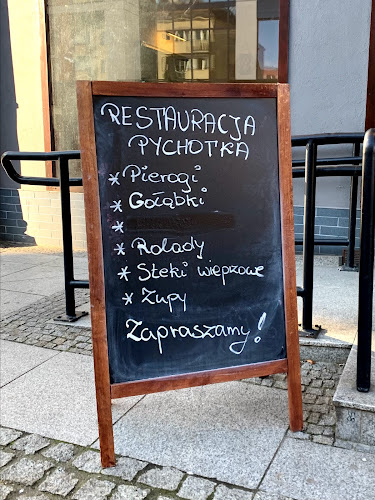 RESTAURACJA
PYCHOTKA
* Pierogi
* Gołąbki
*
* Rolady
* Steki wieprzowe
* Zupy
Zapraszamy!